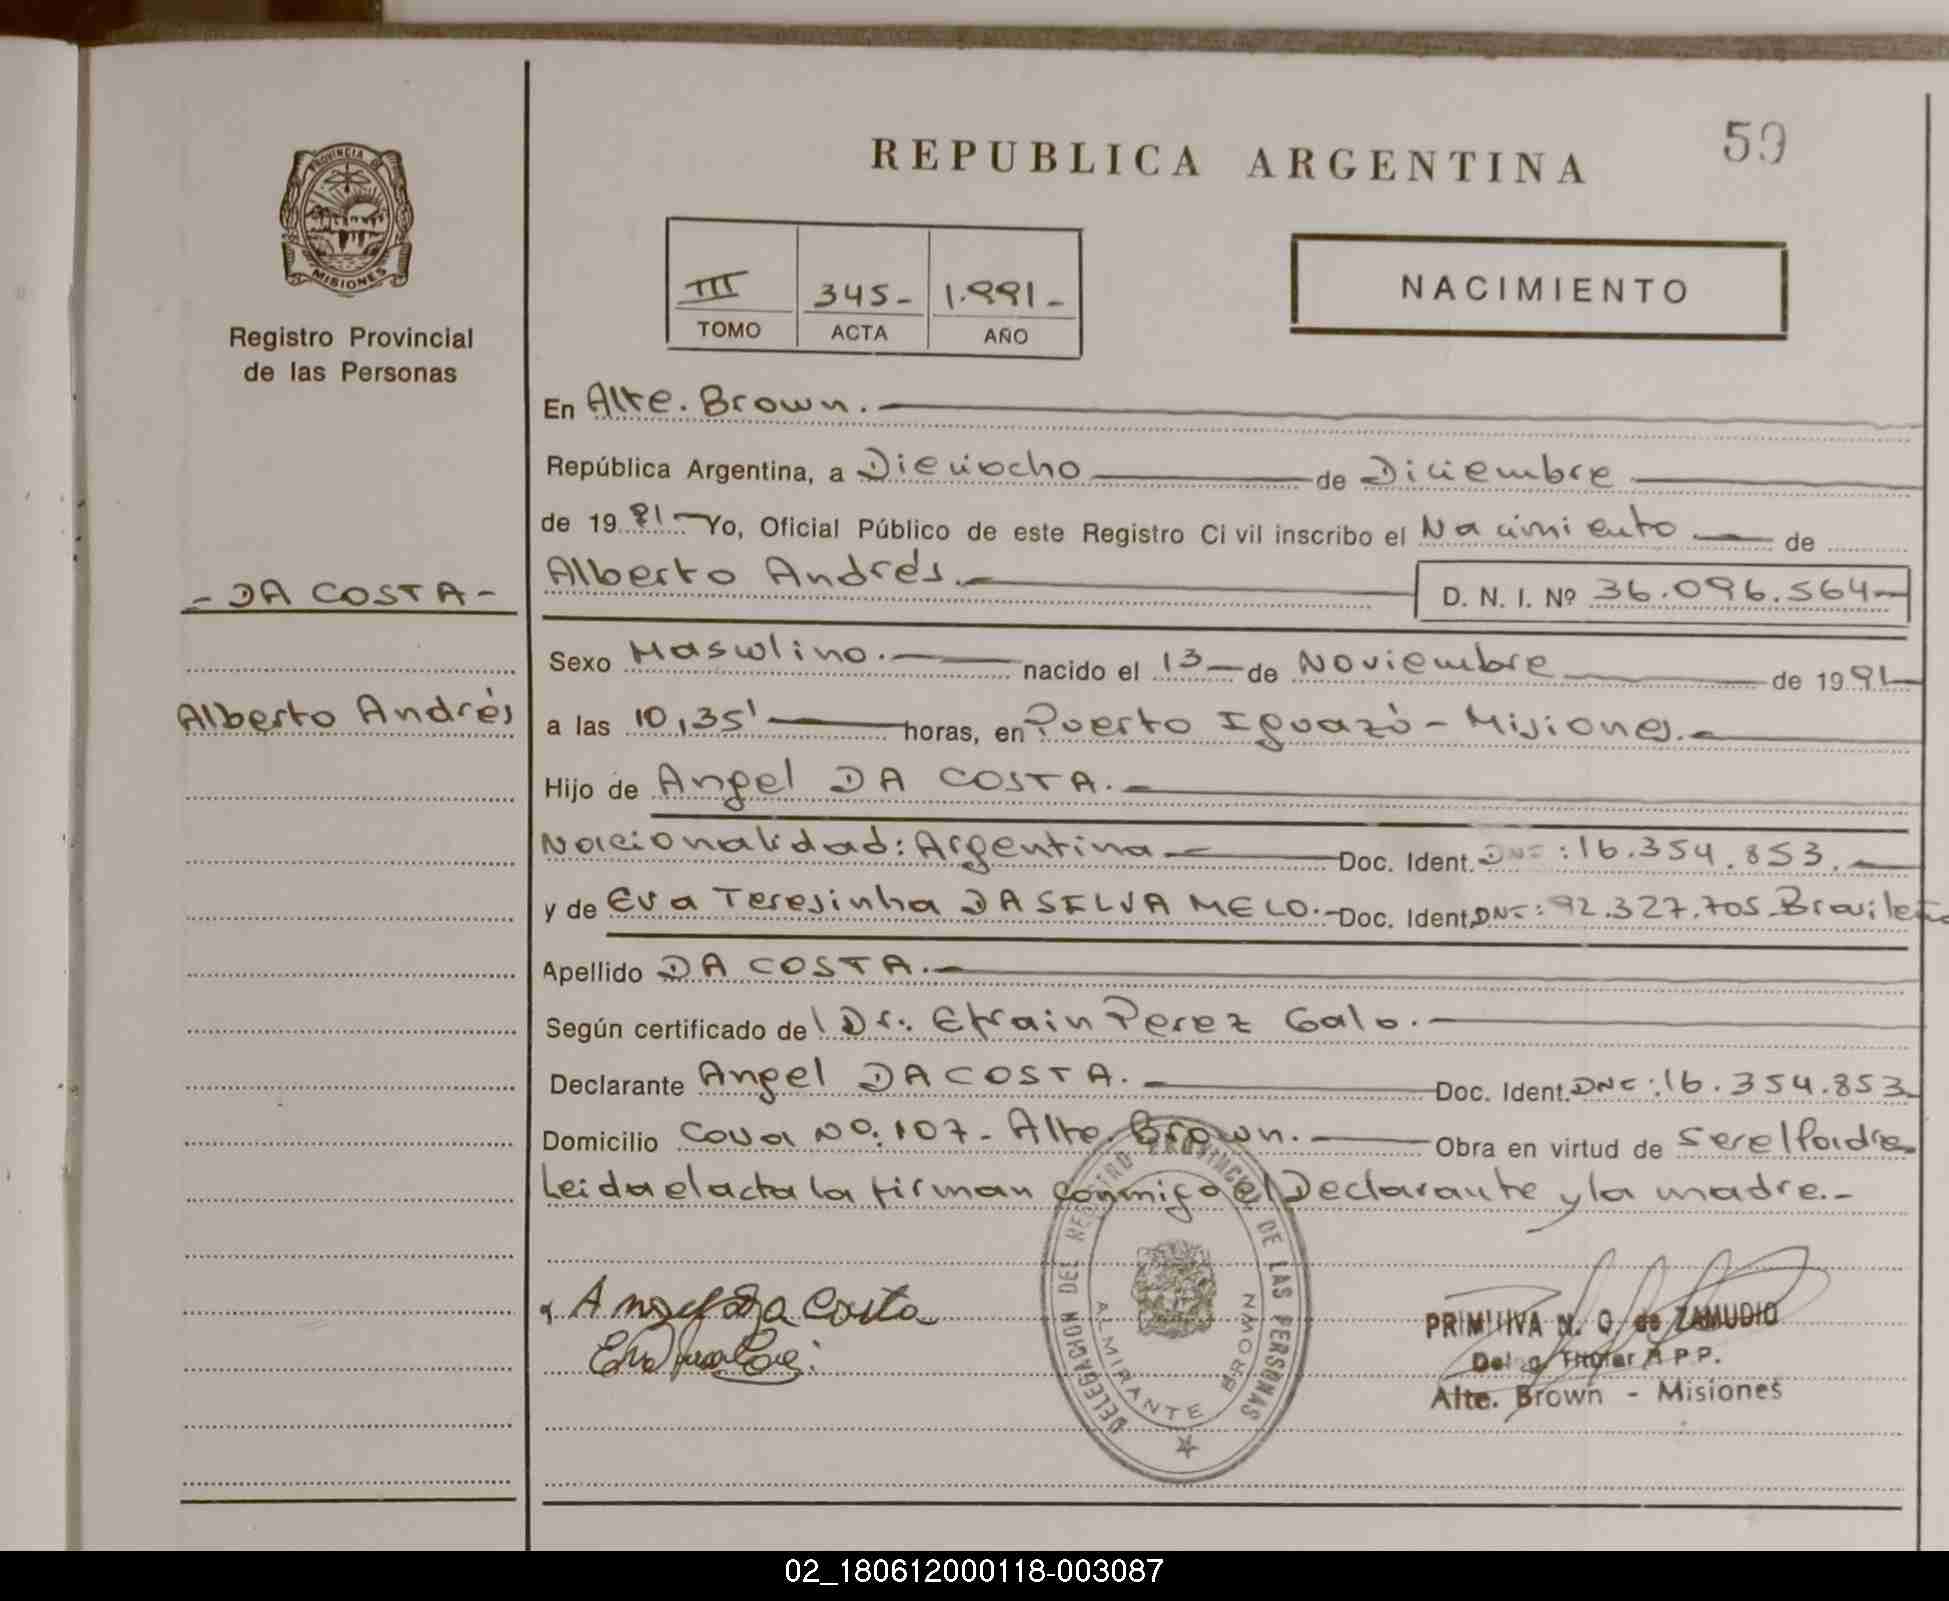 REPUBLICA ARGENTINA
59
PROVINCIA DE
MISIONES
Registro Provincial
de las Personas
III 345- 1.991-
TOMO ACTA AÑO
NACIMIENTO
En Alte. Brown.
República Argentina, a Dieciocho de Diciembre
de 1991 Yo, Oficial Público de este Registro Civil inscribo el Nacimiento de
Alberto Andrés. D. N. I. Nº 36.096.564
- DA COSTA -
Alberto Andrés
Sexo Masculino. nacido el 13 de Noviembre de 1991
a las 10,35' horas, en Puerto Iguazú - Misiones.
Hijo de Angel DA COSTA.
Nacionalidad: Argentina Doc. Ident. DNI: 16.354.853.
y de Eva Teresinha DA SILVA MELO.- Doc. Ident. DNI: 92.327.705. Brasileña
Apellido DA COSTA.
Según certificado del Dr. Efrain Perez Galo.
Declarante Angel DA COSTA. Doc. Ident. DNI: 16.354.853
Domicilio Cova Nº 107 - Alte. Brown. Obra en virtud de ser el Padre
Leida el acta la firman conmigo el Declarante y la madre.-
Angel Da Costa
DELEGACION DEL REGISTRO PROVINCIAL DE LAS PERSONAS
ALMIRANTE BROWN
PRIMITIVA N. O de ZAMUDIO
Deleg. Titular R P P.
Alte. Brown - Misiones
02_180612000118-003087